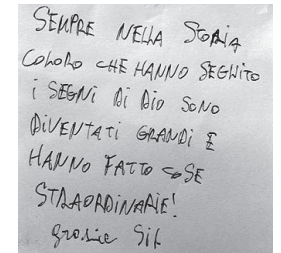 SEMPRE NELLA STORIA
COLORO CHE HANNO SEGUITO
I SEGNI DI DIO SONO
DIVENTATI GRANDI E
HANNO FATTO COSE
STRAORDINARIE!
grazie